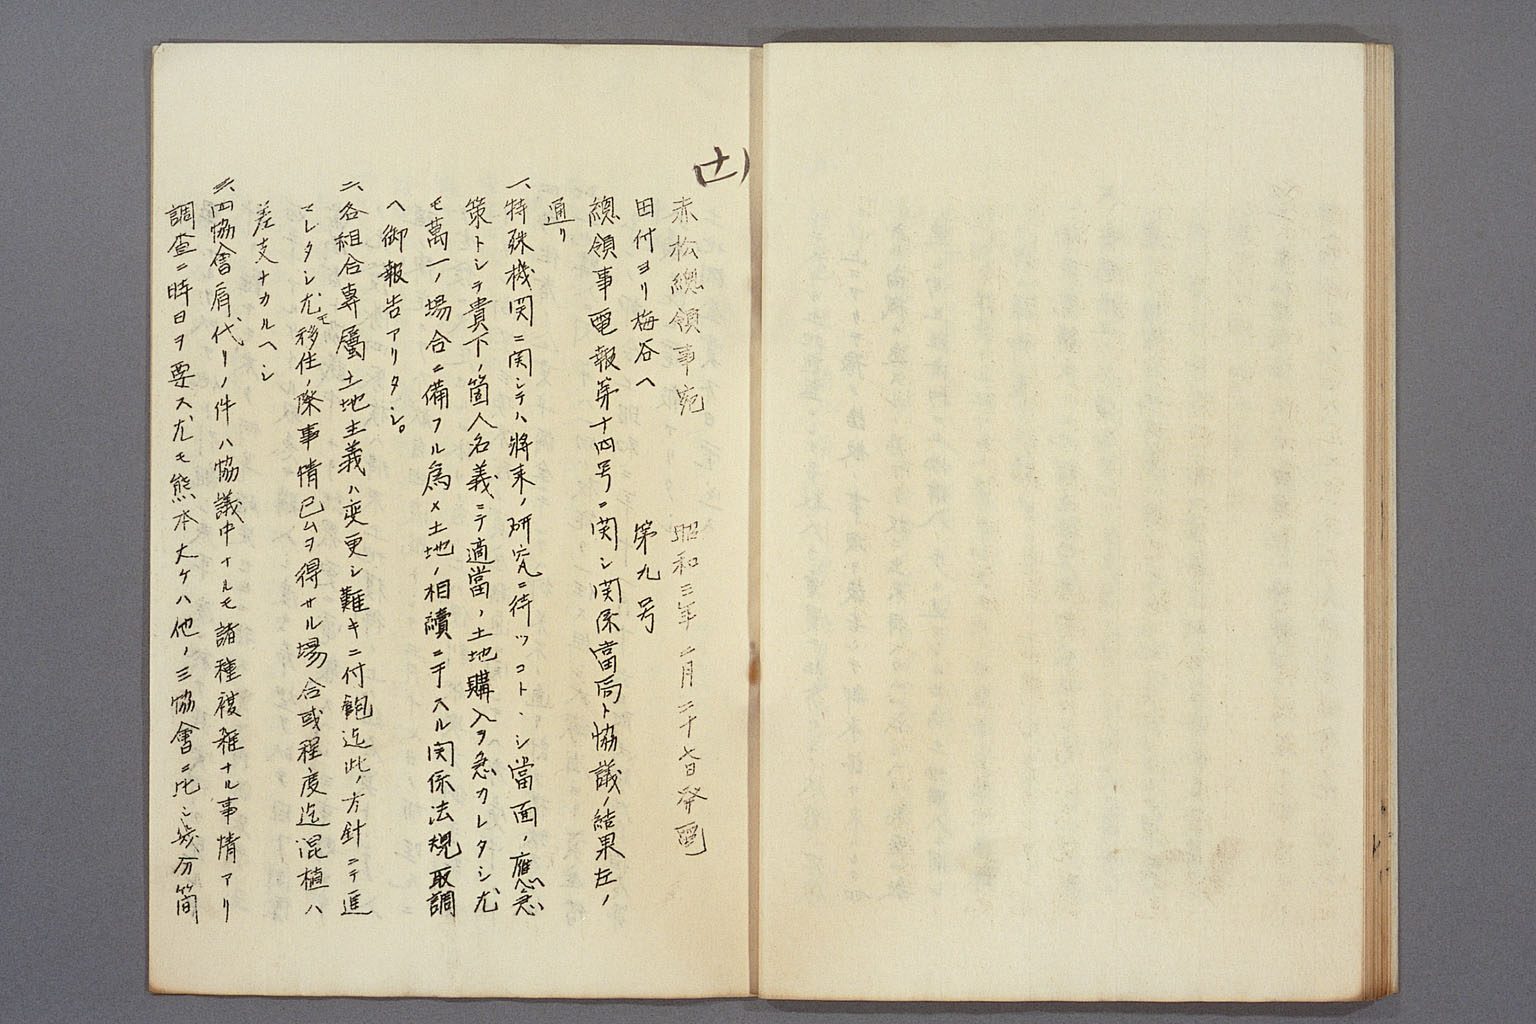 (十)
赤松總領事宛　昭和三年二月二十七日発電
田付ヨリ梅谷ヘ　第九号
總領事電報第十四号ニ関シ関係當局ト協議ノ結果左ノ
通リ
一、特殊機関ニ関シテハ將来ノ研究ニ待ツコトヽシ當面ノ應急
策トシテ貴下ノ箇人名義ニテ適當ノ土地購入ヲ急カレタシ尤
モ萬一ノ場合ニ備フル為メ土地ノ相續ニ干スル関係法規取調
ヘ御報告アリタシ。
二、各組合専屬土地主義ハ変更シ難キニ付飽迄此ノ方針ニテ進
マレタシ尤モ移住ノ際事情已ムヲ得サル場合或程度迄混植ハ
差支ナカルヘシ
三、四協會肩代リノ件ハ協議中ナルモ諸種複雑ナル事情アリ
調査ニ時日ヲ要ス尤モ熊本丈ケハ他ノ三協會ニ比シ幾分簡